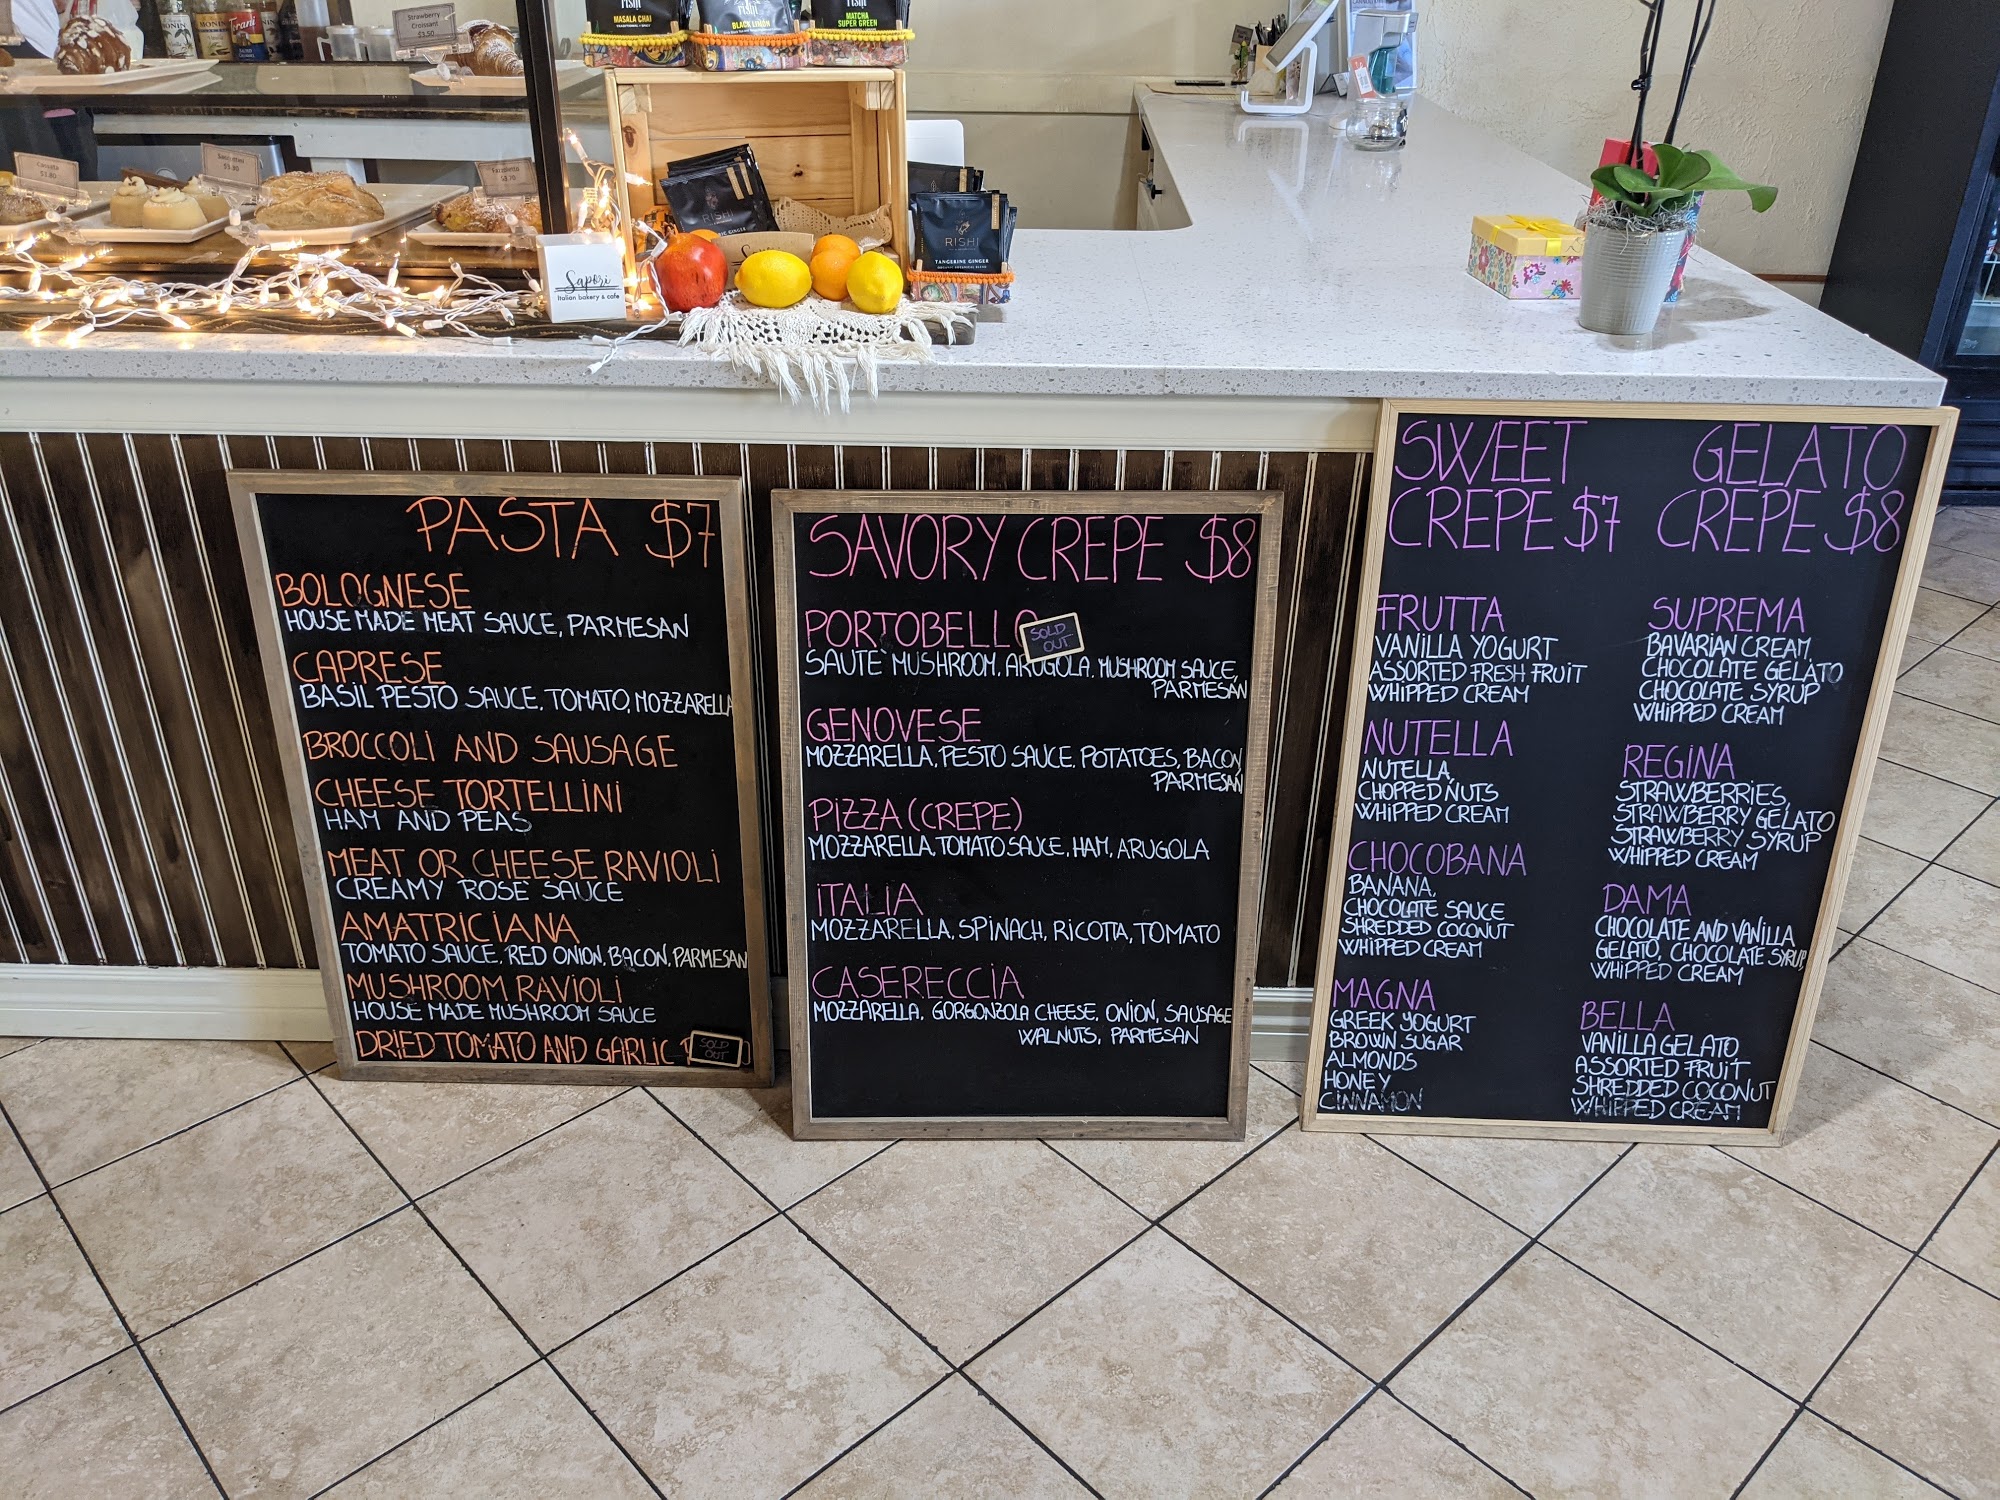 MONIN
MONIN
Torani
Strawberry
Croissant
$3.50
rishi
MASALA CHAI
rishi
BLACK LEMON
rishi
MATCHA
SUPER GREEN
$1.80
$3.70
RISHI
RISHI
TANGERINE GINGER
Sapori
Italian bakery & cafe
PASTA $7
BOLOGNESE
HOUSE MADE MEAT SAUCE, PARMESAN
CAPRESE
BASIL PESTO SAUCE, TOMATO, MOZZARELLA
BROCCOLI AND SAUSAGE
CHEESE TORTELLINI
HAM AND PEAS
MEAT OR CHEESE RAVIOLI
CREAMY ROSE SAUCE
AMATRICIANA
TOMATO SAUCE, RED ONION, BACON, PARMESAN
MUSHROOM RAVIOLI
HOUSE MADE MUSHROOM SAUCE
DRIED TOMATO AND GARLIC
SOLD
OUT
SAVORY CREPE $8
PORTOBELLO
SOLD
OUT
SAUTE MUSHROOM, ARUGOLA, MUSHROOM SAUCE,
PARMESAN
GENOVESE
MOZZARELLA, PESTO SAUCE, POTATOES, BACON
PARMESAN
PIZZA (CREPE)
MOZZARELLA, TOMATO SAUCE, HAM, ARUGOLA
ITALIA
MOZZARELLA, SPINACH, RICOTTA, TOMATO
CASERECCIA
MOZZARELLA, GORGONZOLA CHEESE, ONION, SAUSAGE
WALNUTS, PARMESAN
SWEET
CREPE $7
FRUTTA
VANILLA YOGURT
ASSORTED FRESH FRUIT
WHIPPED CREAM
NUTELLA
NUTELLA,
CHOPPED NUTS
WHIPPED CREAM
CHOCOBANA
BANANA,
CHOCOLATE SAUCE
SHREDDED COCONUT
WHIPPED CREAM
MAGNA
GREEK YOGURT
BROWN SUGAR
ALMONDS
HONEY
CINNAMON
GELATO
CREPE $8
SUPREMA
BAVARIAN CREAM,
CHOCOLATE GELATO
CHOCOLATE SYRUP
WHIPPED CREAM
REGINA
STRAWBERRIES,
STRAWBERRY GELATO
STRAWBERRY SYRUP
WHIPPED CREAM
DAMA
CHOCOLATE AND VANILLA
GELATO, CHOCOLATE SYRUP,
WHIPPED CREAM
BELLA
VANILLA GELATO,
ASSORTED FRUIT
SHREDDED COCONUT
WHIPPED CREAM